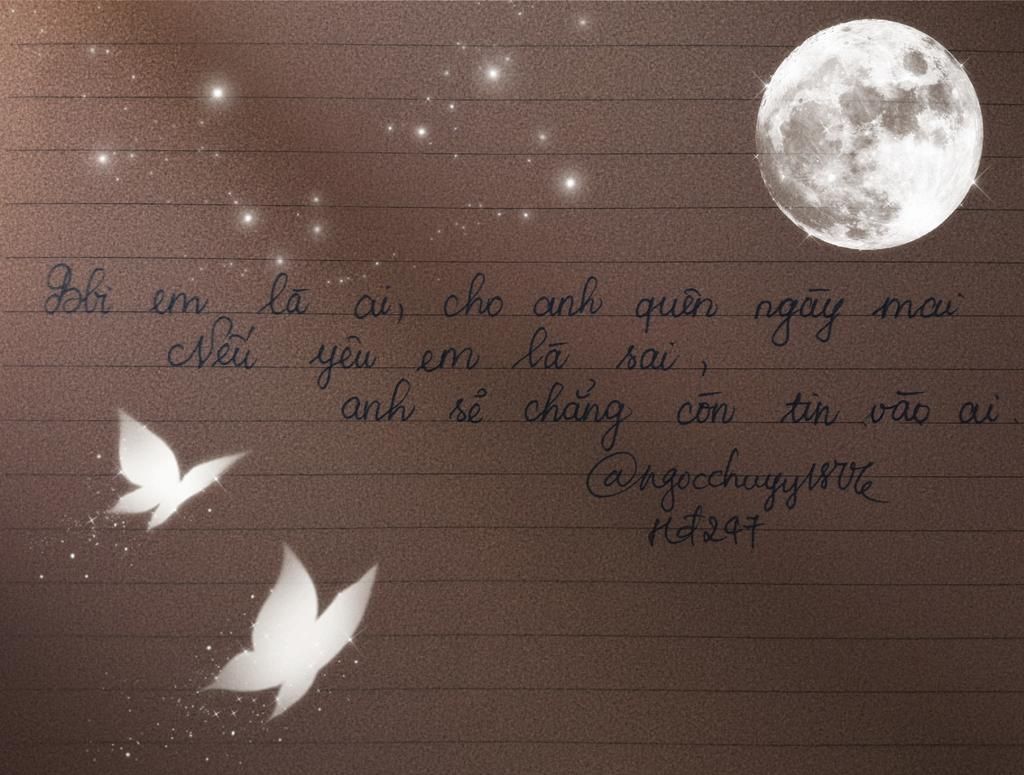 Bbi em là ai, cho anh quên ngày mai
Nếu yêu em là sai,
anh sẽ chẳng còn tin vào ai.
@ngocchuyy1806
HĐ247